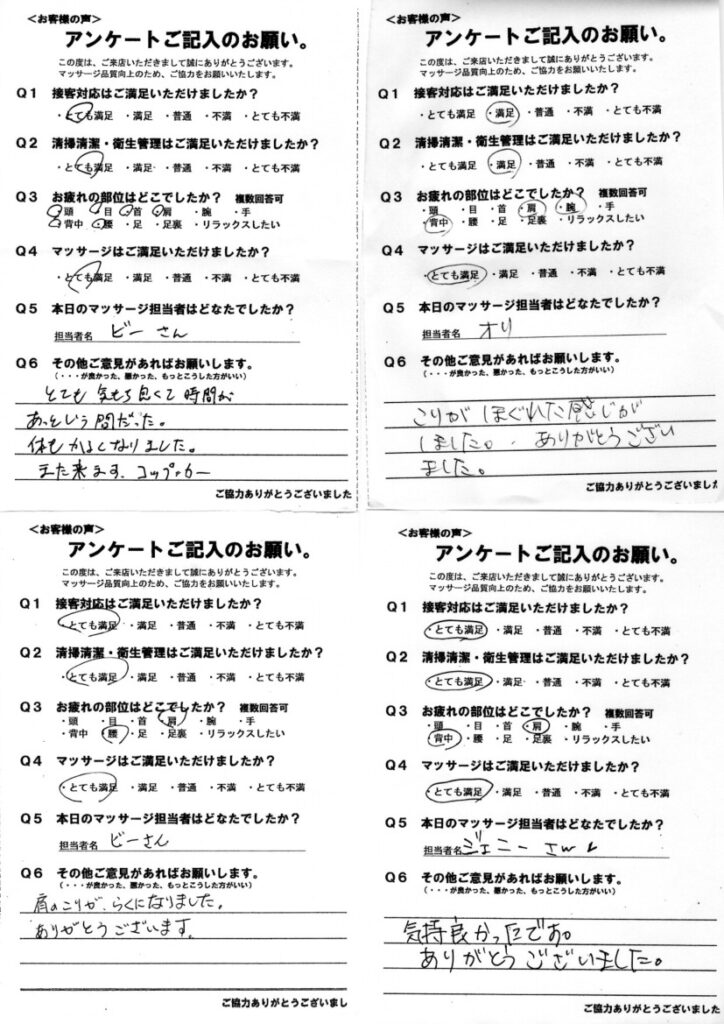 <お客様の声>
アンケートご記入のお願い。
この度は、ご来店いただきまして誠にありがとうございます。
マッサージ品質向上のため、ご協力をお願いいたします。
Q1 接客対応はご満足いただけましたか?
・とても満足 ・満足 ・普通 ・不満 ・とても不満
Q2 清掃清潔・衛生管理はご満足いただけますか?
・とても満足 ・満足 ・普通 ・不満 ・とても不満
Q3 お疲れの部位はどこでしたか? 複数回答可
・頭 ・目 ・首 ・肩 ・腕 ・手
・背中 ・腰 ・足 ・足裏 ・リラックスしたい
Q4 マッサージはご満足いただけましたか?
・とても満足 ・満足 ・普通 ・不満 ・とても不満
Q5 本日のマッサージ担当者はどなたでしたか?
担当者名 ビーさん
Q6 その他ご意見があればお願いします。
(・・・が良かった、悪かった、もっとこうした方がいい)
とても気もち良くて時間が
あっという間だった。
体もかるくなりました。
また来ます。
ご協力ありがとうございました
<お客様の声>
アンケートご記入のお願い。
この度は、ご来店いただきまして誠にありがとうございます。
マッサージ品質向上のため、ご協力をお願いいたします。
Q1 接客対応はご満足いただけましたか?
・とても満足 ・満足 ・普通 ・不満 ・とても不満
Q2 清掃清潔・衛生管理はご満足いただけますか?
・とても満足 ・満足 ・普通 ・不満 ・とても不満
Q3 お疲れの部位はどこでしたか? 複数回答可
・頭 ・目 ・首 ・肩 ・腕 ・手
・背中 ・腰 ・足 ・足裏 ・リラックスしたい
Q4 マッサージはご満足いただけましたか?
・とても満足 ・満足 ・普通 ・不満 ・とても不満
Q5 本日のマッサージ担当者はどなたでしたか?
担当者名 オリ
Q6 その他ご意見があればお願いします。
(・・・が良かった、悪かった、もっとこうした方がいい)
こりがほぐれた感じが
しました。ありがとうござい
ました。
ご協力ありがとうございました
<お客様の声>
アンケートご記入のお願い。
この度は、ご来店いただきまして誠にありがとうございます。
マッサージ品質向上のため、ご協力をお願いいたします。
Q1 接客対応はご満足いただけましたか?
・とても満足 ・満足 ・普通 ・不満 ・とても不満
Q2 清掃清潔・衛生管理はご満足いただけますか?
・とても満足 ・満足 ・普通 ・不満 ・とても不満
Q3 お疲れの部位はどこでしたか? 複数回答可
・頭 ・目 ・首 ・肩 ・腕 ・手
・背中 ・腰 ・足 ・足裏 ・リラックスしたい
Q4 マッサージはご満足いただけましたか?
・とても満足 ・満足 ・普通 ・不満 ・とても不満
Q5 本日のマッサージ担当者はどなたでしたか?
担当者名 ビーさん
Q6 その他ご意見があればお願いします。
(・・・が良かった、悪かった、もっとこうした方がいい)
肩のこりが、らくになりました。
ありがとうございます。
ご協力ありがとうございまし
<お客様の声>
アンケートご記入のお願い。
この度は、ご来店いただきまして誠にありがとうございます。
マッサージ品質向上のため、ご協力をお願いいたします。
Q1 接客対応はご満足いただけましたか?
・とても満足 ・満足 ・普通 ・不満 ・とても不満
Q2 清掃清潔・衛生管理はご満足いただけますか?
・とても満足 ・満足 ・普通 ・不満 ・とても不満
Q3 お疲れの部位はどこでしたか? 複数回答可
・頭 ・目 ・首 ・肩 ・腕 ・手
・背中 ・腰 ・足 ・足裏 ・リラックスしたい
Q4 マッサージはご満足いただけましたか?
・とても満足 ・満足 ・普通 ・不満 ・とても不満
Q5 本日のマッサージ担当者はどなたでしたか?
担当者名 ジェニーさん
Q6 その他ご意見があればお願いします。
(・・・が良かった、悪かった、もっとこうした方がいい)
気持良かったです。
ありがとうございました。
ご協力ありがとうございました